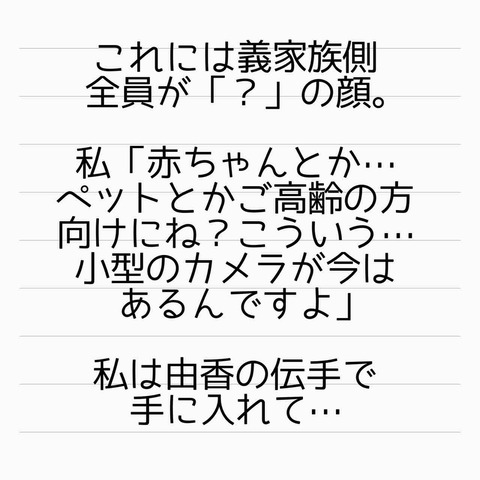 これには義家族側
全員が「？」の顔。
私「赤ちゃんとか…
ペットとかご高齢の方
向けにね？こういう…
小型のカメラが今は
あるんですよ」
私は由香の伝手で
手に入れて…